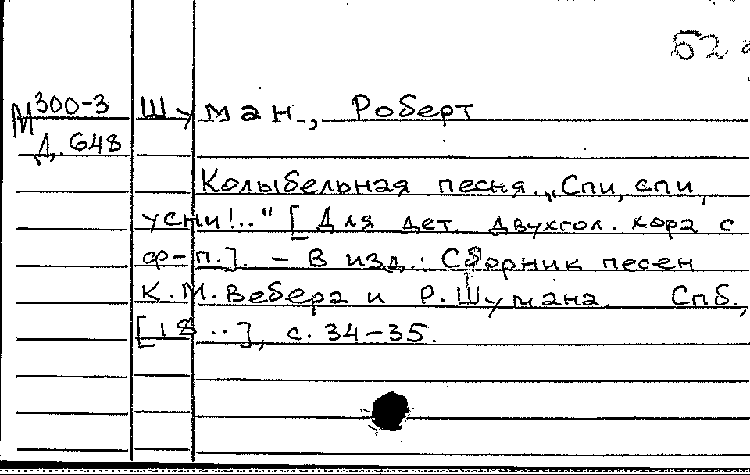 52
М 300-3 Шуман, Роберт
Д. 648
Колыбельная песня. „Спи, спи,
усни!.." [Для дет. двухгол. хора с
ф-п.]. - В изд.: Сборник песен
К.М. Вебера и Р. Шумана. Спб.,
[18..], с. 34-35.